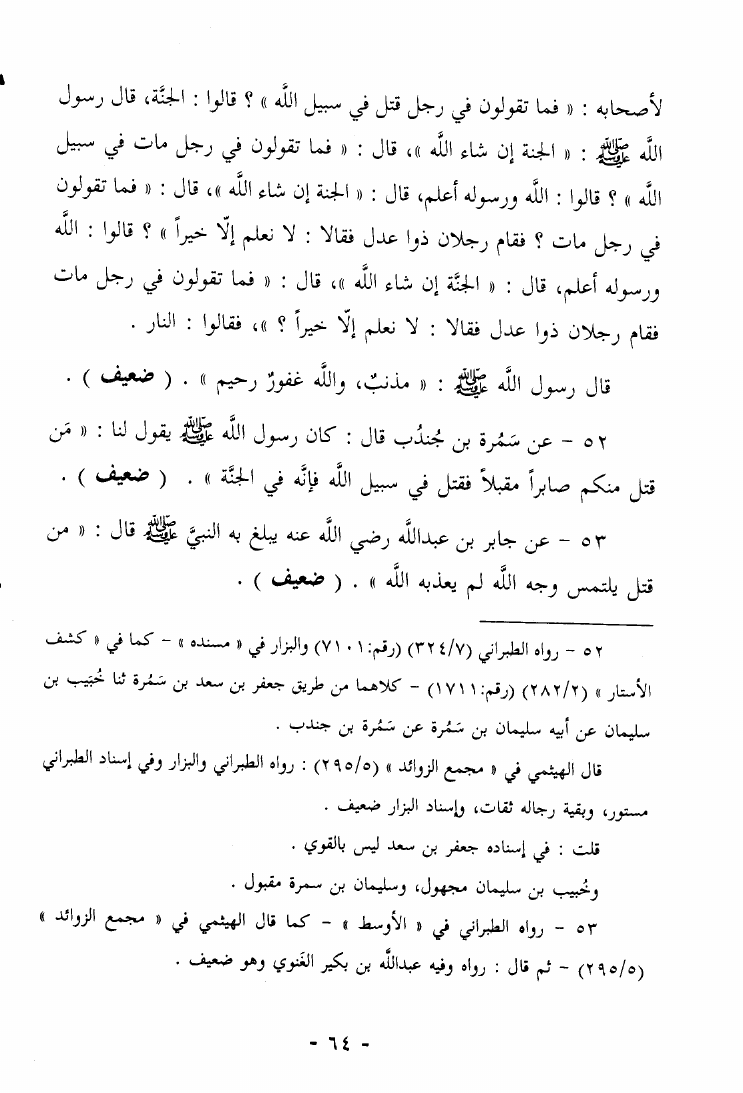 لأصحابه : « فما تقولون في رجل قتل في سبيل اللَّه » ؟ قالوا : الجنَّة، قال رسول
اللَّه ﷺ : « الجنة إن شاء اللَّه »، قال : « فما تقولون في رجل مات في سبيل
اللَّه » ؟ قالوا : اللَّه ورسوله أعلم، قال : « الجنة إن شاء اللَّه »، قال : « فما تقولون
في رجل مات ؟ فقام رجلان ذوا عدل فقالا : لا نعلم إلّا خيراً » ؟ قالوا : اللَّه
ورسوله أعلم، قال : « الجنَّة إن شاء اللَّه »، قال : « فما تقولون في رجل مات
فقام رجلان ذوا عدل فقالا : لا نعلم إلّا خيراً ؟ »، فقالوا : النار .
قال رسول اللَّه ﷺ : « مذنبٌ، واللَّه غفورٌ رحيم » . ( ضعيف ) .
٥٢ - عن سَمُرة بن جُندُب قال : كان رسول اللَّه ﷺ يقول لنا : « مَن
قتل منكم صابراً مقبلاً فقتل في سبيل اللَّه فإنَّه في الجنَّة » . ( ضعيف ) .
٥٣ - عن جابر بن عبداللَّه رضي اللَّه عنه يبلغ به النبيَّ ﷺ قال : « من
قتل يلتمس وجه اللَّه لم يعذبه اللَّه » . ( ضعيف ) .
٥٢ - رواه الطبراني (٣٢٤/٧) (رقم:٧١٠١) والبزار في « مسنده » - كما في « كشف
الأستار » (٢٨٢/٢) (رقم:١٧١١) - كلاهما من طريق جعفر بن سعد بن سَمُرة ثنا خُبَيب بن
سليمان عن أبيه سليمان بن سَمُرة عن سَمُرة بن جندب .
قال الهيثمي في « مجمع الزوائد » (٢٩٥/٥) : رواه الطبراني والبزار وفي إسناد الطبراني
مستور، وبقية رجاله ثقات، وإسناد البزار ضعيف .
قلت : في إسناده جعفر بن سعد ليس بالقوي .
وخُبيب بن سليمان مجهول، وسليمان بن سمرة مقبول .
٥٣ - رواه الطبراني في « الأوسط » - كما قال الهيثمي في « مجمع الزوائد »
(٢٩٥/٥) - ثم قال : رواه وفيه عبداللَّه بن بكير الغَنوي وهو ضعيف .
- ٦٤ -